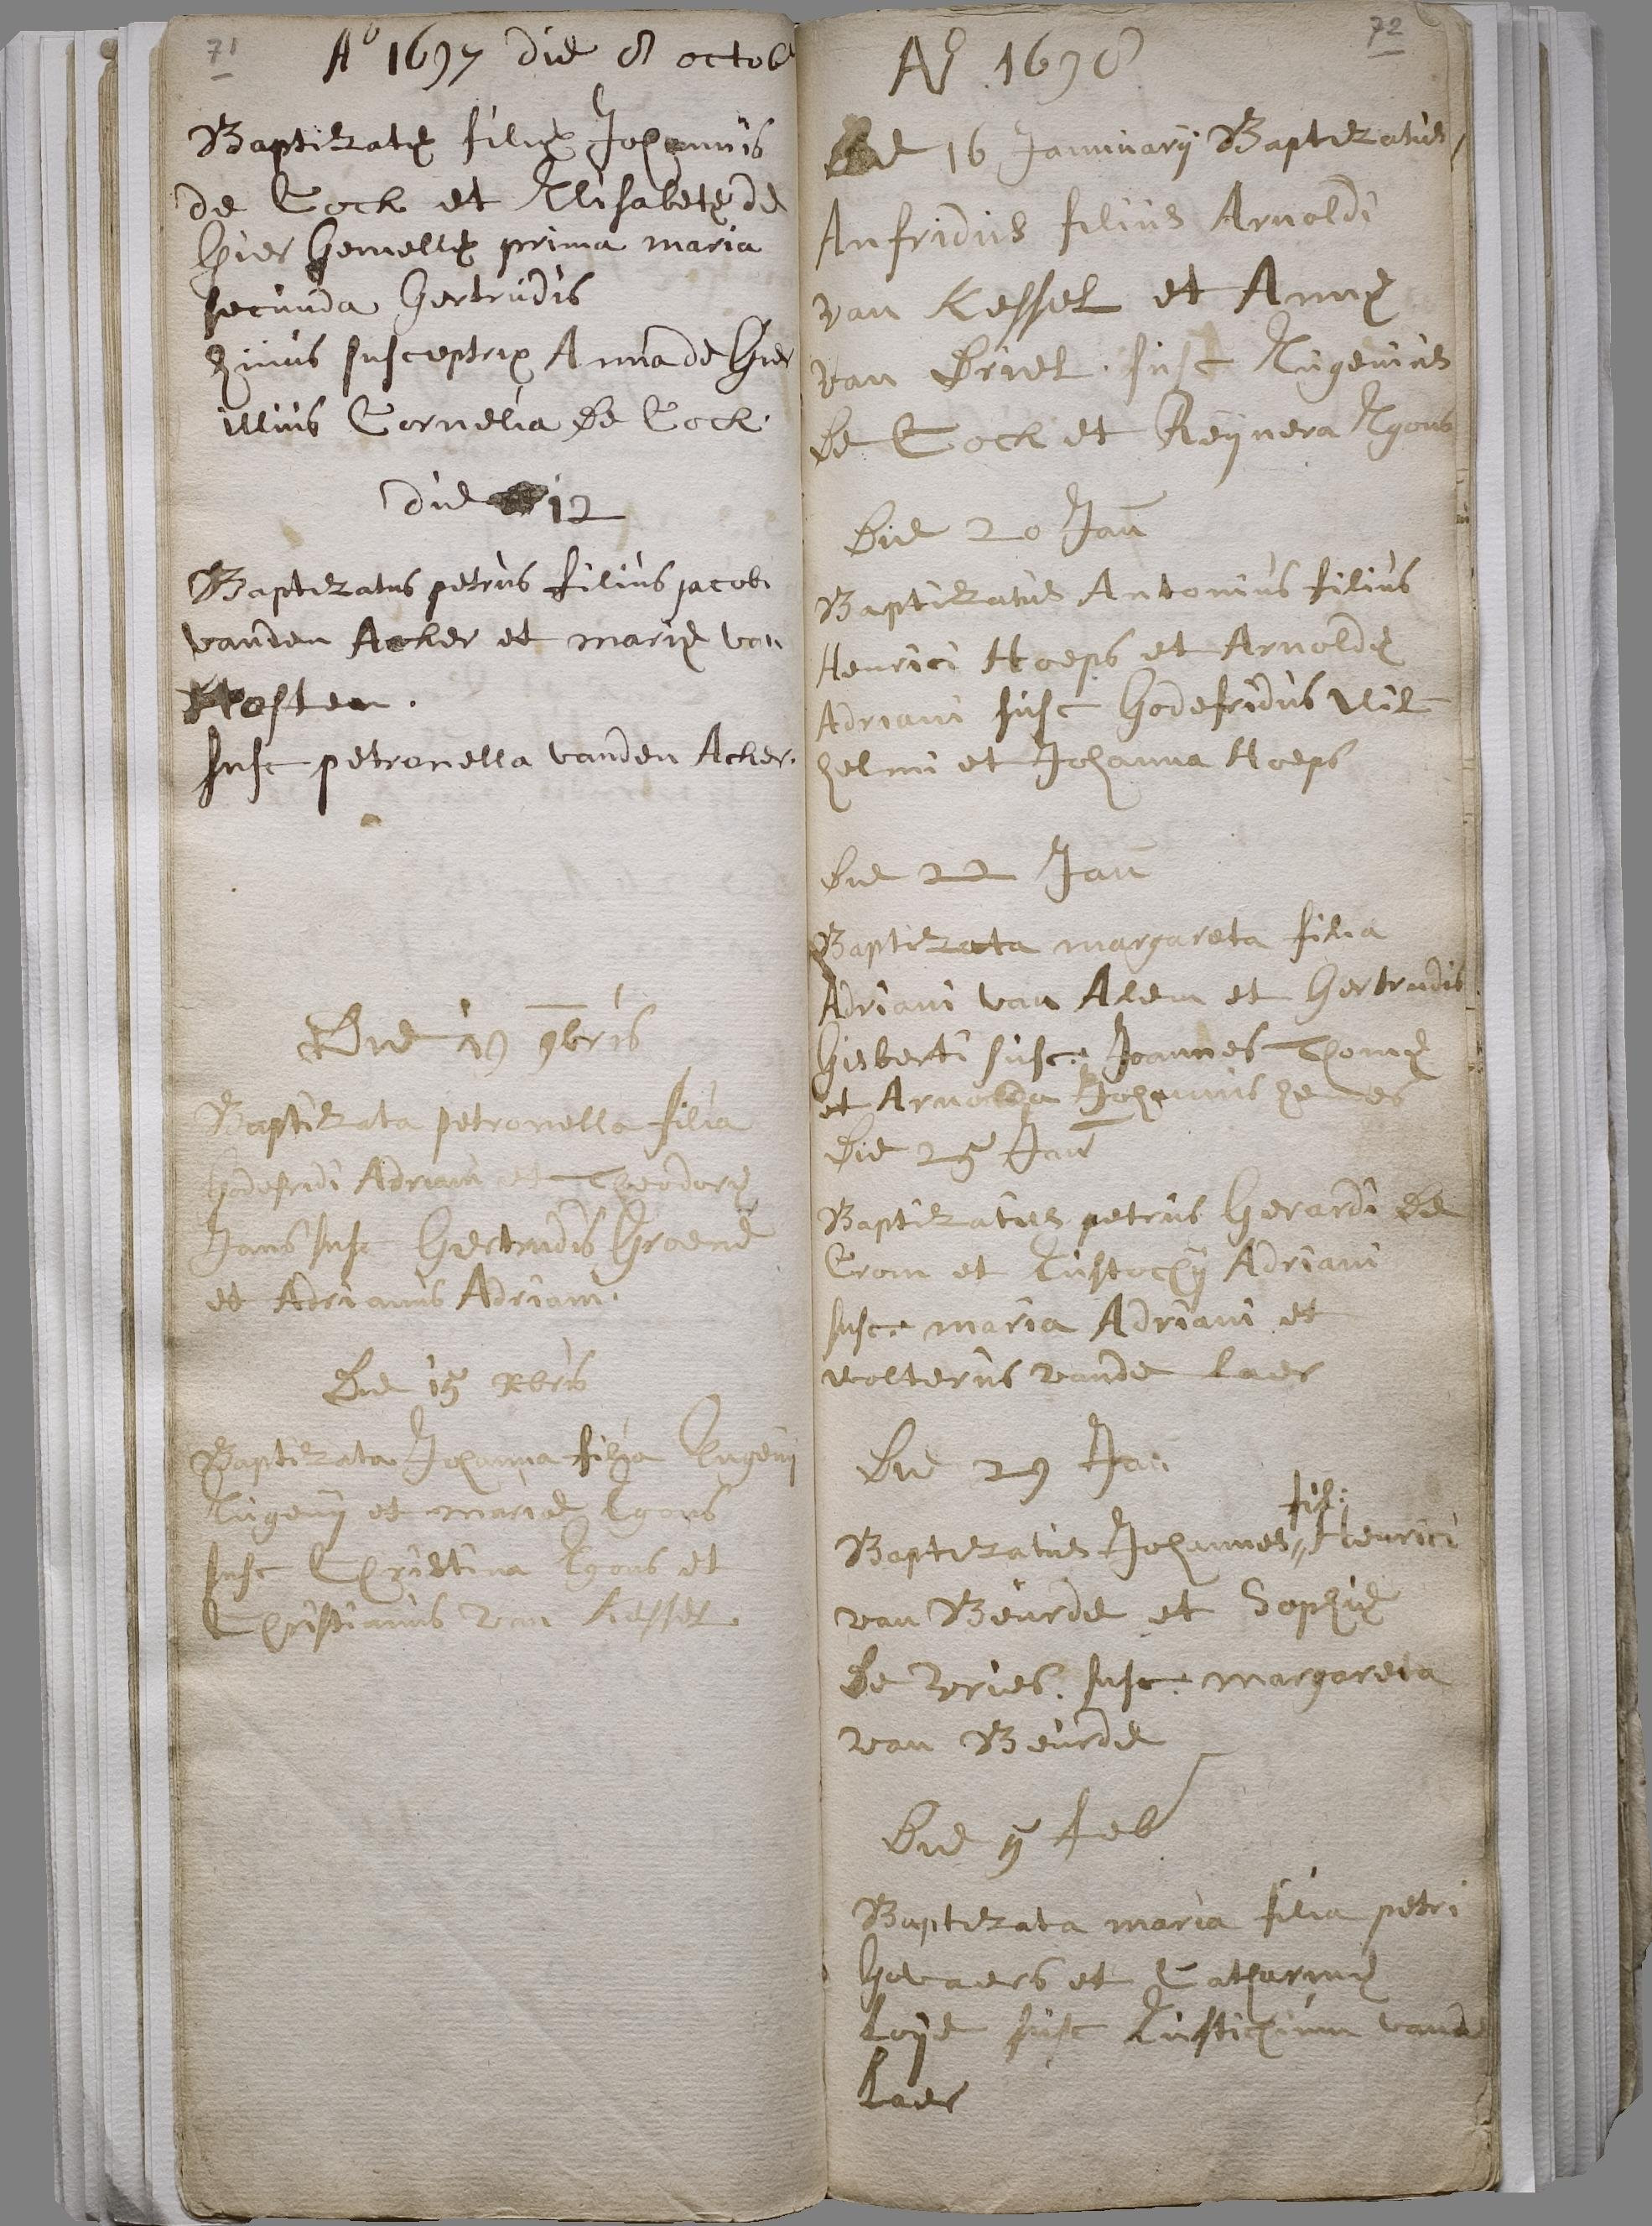 71
Aº 1697 die 8 octob
Baptizatę filię Johannis
de Cock et Elisabetę de
Gier Gemellę prima maria
secunda Gertrudis
hujus susceptrix Anna de Gier
illius Cornelia de Cock.
die 12
Baptizatus petrus filius jacobi
vanden Acker et marię van
Hosten.
susc petronella vanden Acker.
Die 19 9bris
Baptizata petronella filia
Godefridi Adriani et Theodorę
Jans susc Giertrudis Groene
et Adrianus Adriani.
Die 15 xbris
Baptizata Johanna filia Eugenij
Eugenij et mariae Egons
susc Christina Egons et
Christianus van Kessel
72
Aº 1698
Die 16 Januuarij Baptizatus
Anfridus filius Arnoldi
van Kessel et Annę
van Driel. susc Eugenius
de Cock et Reijnera Egons
Die 20 Jan
Baptizatus Antonius filius
Henrici Hoeps et Arnoldę
Adriani susc Godefridus Wil
helmi et Johanna Hoeps
Die 22 Jan
Baptizata margareta filia
Adriani van Alem et Gertrudis
Gisberti susc. Joannes Thomę
et Arnolda Johannis
Die 25 Jan
Baptizatus petrus Gerardi de
Crom et Eustochij Adriani
susc. maria Adriani et
wolterus vande Laer
Die 29 Jan
fil:
Baptizatus Johannes,, Henrici
van Beurde et Sophię
de Vries. susc. margareta
van Beurde
Die 5 feb
Baptizata maria filia petri
Govaers et Catharinę
Loije susc Eustichium vande
Laer